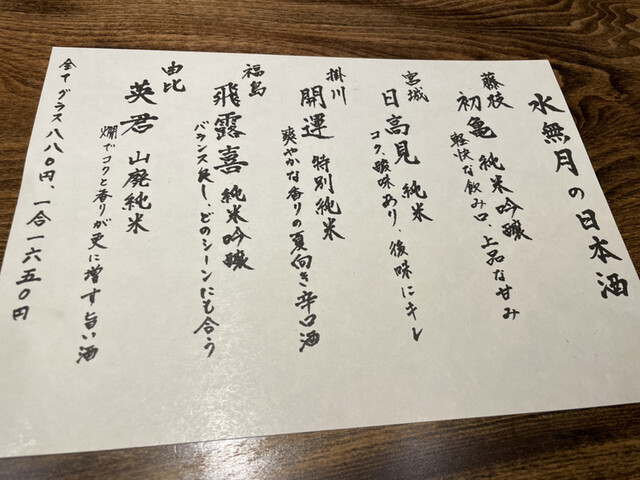 水無月の日本酒
藤枝
初亀 純米吟醸
軽快な飲み口、上品な甘み
宮城
日高見 純米
コク、酸味あり、後味にキレ
掛川
開運 特別純米
爽やかな香りの夏向き辛口酒
福島
飛露喜 純米吟醸
バランス良し、どのシーンにも合う
由比
英君 山廃純米
燗でコクと香りが更に増す旨い酒
全てグラス八八〇円、一合一六五〇円